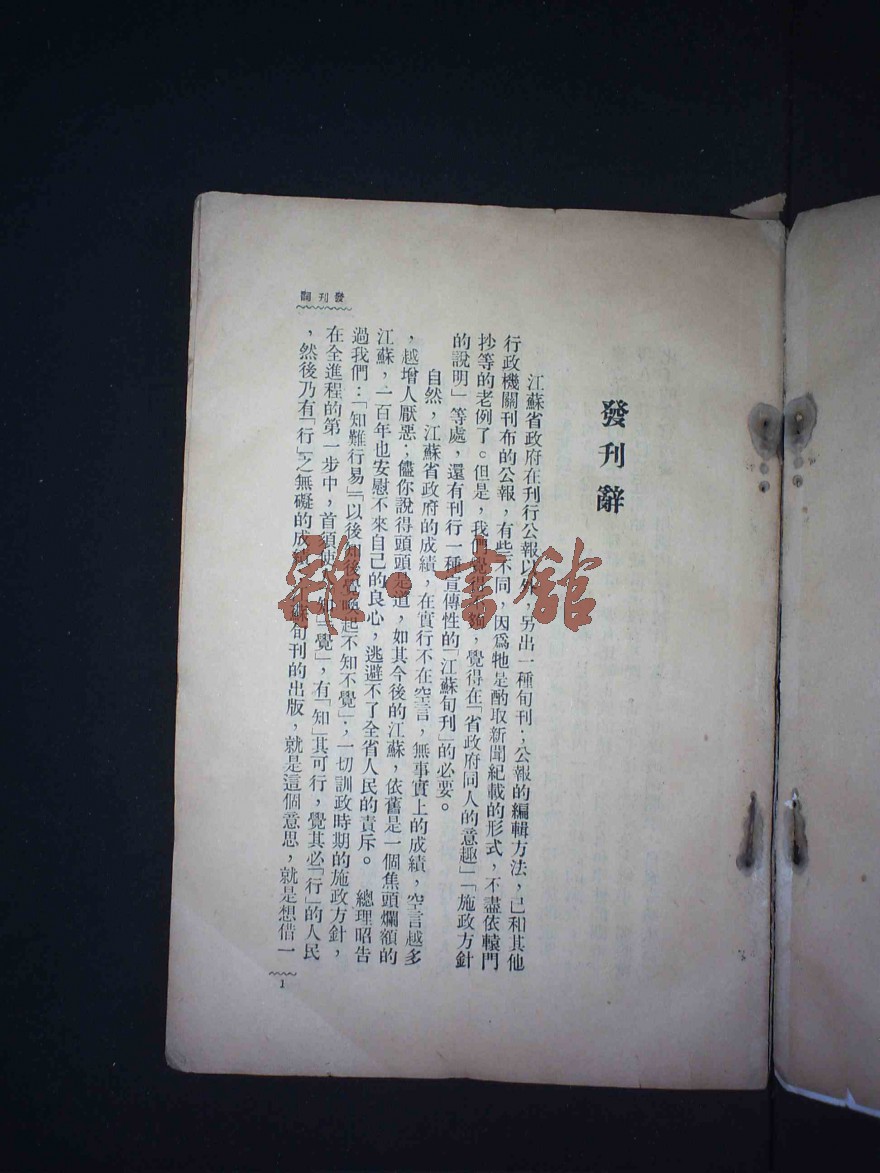 發刊辭
江蘇省政府在刊行公報以外，另出一種旬刊；公報的編輯方法，已和其他
行政機關刊布的公報，有些不同，因爲牠是酌取新聞紀載的形式，不盡依轅門
抄等的老例了。但是，我們覺得，覺得在「省政府同人的意趣」「施政方針
的說明」等處，還有刊行一種宣傳性的「江蘇旬刊」的必要。
自然，江蘇省政府的成績，在實行不在空言，無事實上的成績，空言越多
，越增人厭惡；儘你說得頭頭是道，如其今後的江蘇，依舊是一個焦頭爛額的
江蘇，一百年也安慰不來自己的良心，逃避不了全省人民的責斥。　總理昭告
過我們：「知難行易」「以後知後覺喚起不知不覺」；一切訓政時期的施政方針，
在全進程的第一步中，首須「知」「覺」，有「知」其可行，覺其必「行」的人民
，然後乃有「行」之無礙的成蘇旬刊的出版，就是這個意思，就是想借一
發刊詞
1
雜·書館